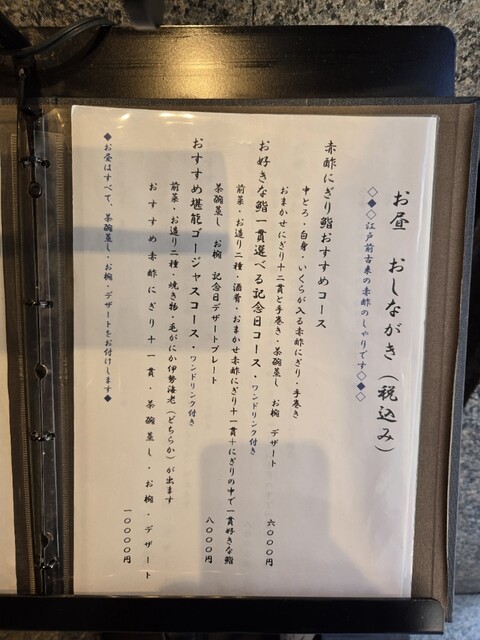 お昼 おしながき（税込み）
◇◆◇江戸前古来の赤酢のしゃりです◇◆◇
赤酢にぎり鮨おすすめコース
中とろ・白身・いくらが入る赤酢にぎり・手巻き
おまかせにぎり十二貫と手巻き・茶碗蒸し お椀 デザート
六〇〇〇円
お好きな鮨一貫選べる記念日コース・ワンドリンク付き
前菜・お造り二種・酒肴・おまかせ赤酢にぎり十一貫＋にぎりの中で一貫好きな鮨
茶碗蒸し お椀 記念日デザートプレート
八〇〇〇円
おすすめ堪能ゴージャスコース・ワンドリンク付き
前菜・お造り二種・焼き物・毛がにか伊勢海老（どちらか）が出ます
おすすめ赤酢にぎり十一貫・茶碗蒸し・お椀・デザート
一〇〇〇〇円
◆お昼はすべて、茶碗蒸し・お椀・デザートをお付けします◆